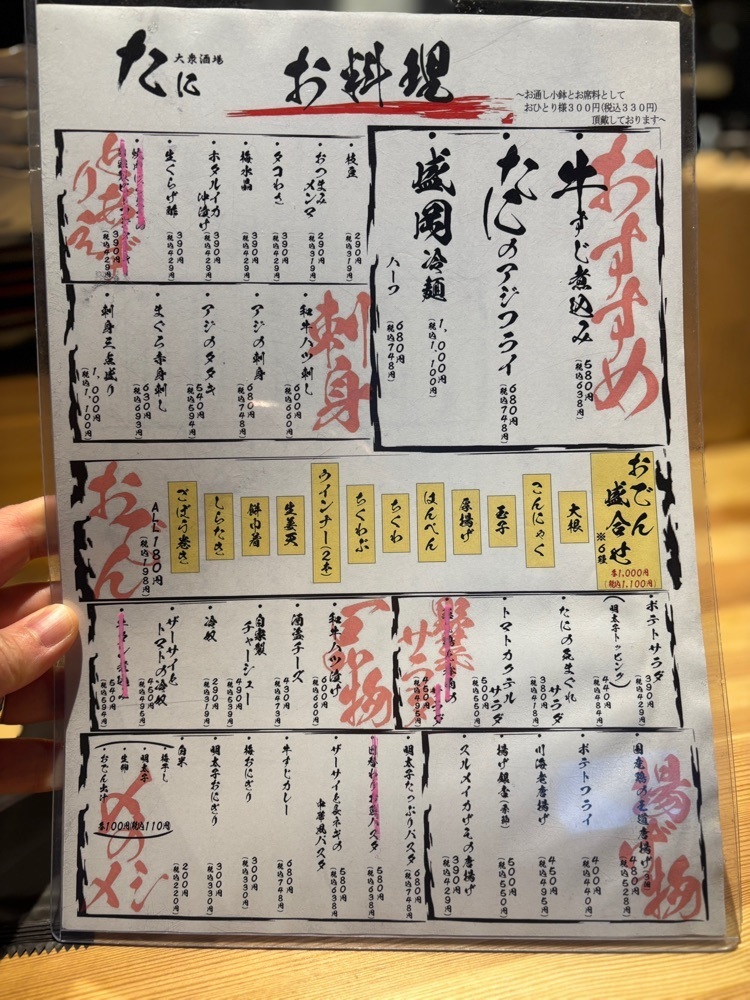 大衆酒場
たに
お料理
～お通し小鉢とお席料として
おひとり様300円(税込330円)
頂戴しております～
おすすめ
・牛すじ煮込み 580円(税込638円)
・たにのアジフライ 680円(税込748円)
・盛岡冷麺 1,000円(税込1,100円)
ハーフ 680円(税込748円)
とりあえず
・枝豆 290円(税込319円)
・おつまみメンマ 290円(税込319円)
・タコわさ 390円(税込429円)
・梅水晶 390円(税込429円)
・ホタルイカ沖漬け 390円(税込429円)
・生くらげ酢 390円(税込429円)
390円(税込429円)
390円(税込429円)
刺身
・和牛ハツ刺し 600円(税込660円)
・アジの刺身 680円(税込748円)
・アジのタタキ 540円(税込594円)
・まぐろ赤身刺し 630円(税込693円)
・刺身三点盛り 1,000円(税込1,100円)
おでん
おでん盛合せ
※6種
各1,000円
(税込1,100円)
大根
こんにゃく
玉子
厚揚げ
はんぺん
ちくわ
ちくわぶ
ウインナー(2本)
生姜天
餅巾着
しらたき
ごぼう巻き
ALL 180円
(税込198円)
サラダ
・ポテトサラダ 390円(税込429円)
(明太子トッピング) 440円(税込484円)
・たにの気まぐれサラダ 380円(税込418円)
・トマトカクテルサラダ 500円(税込550円)
サラダ 450円(税込495円)
一品物
・和牛ハツ漬け 600円(税込660円)
・酒盗チーズ 430円(税込473円)
・自家製チャーシュー 490円(税込539円)
・冷奴 290円(税込319円)
・ザーサイとトマトの冷奴 450円(税込495円)
540円
揚げ物
・国産鶏の王道唐揚げ(3個) 480円(税込528円)
・ポテトフライ 400円(税込440円)
・川海老唐揚げ 450円(税込495円)
・揚げ銀杏(季節) 500円(税込550円)
・スルメイカげその唐揚げ 390円(税込429円)
〆のメシ
・明太子たっぷりパスタ 680円(税込748円)
・日替わりお皿パスタ 580円(税込638円)
・ザーサイと長ネギの中華風パスタ 580円(税込638円)
・牛すじカレー 680円(税込748円)
・梅おにぎり 300円(税込330円)
・明太子おにぎり 300円(税込330円)
・白米 200円(税込220円)
・梅干し
・明太子
・生卵
・おでん出汁
各100円(税込110円)